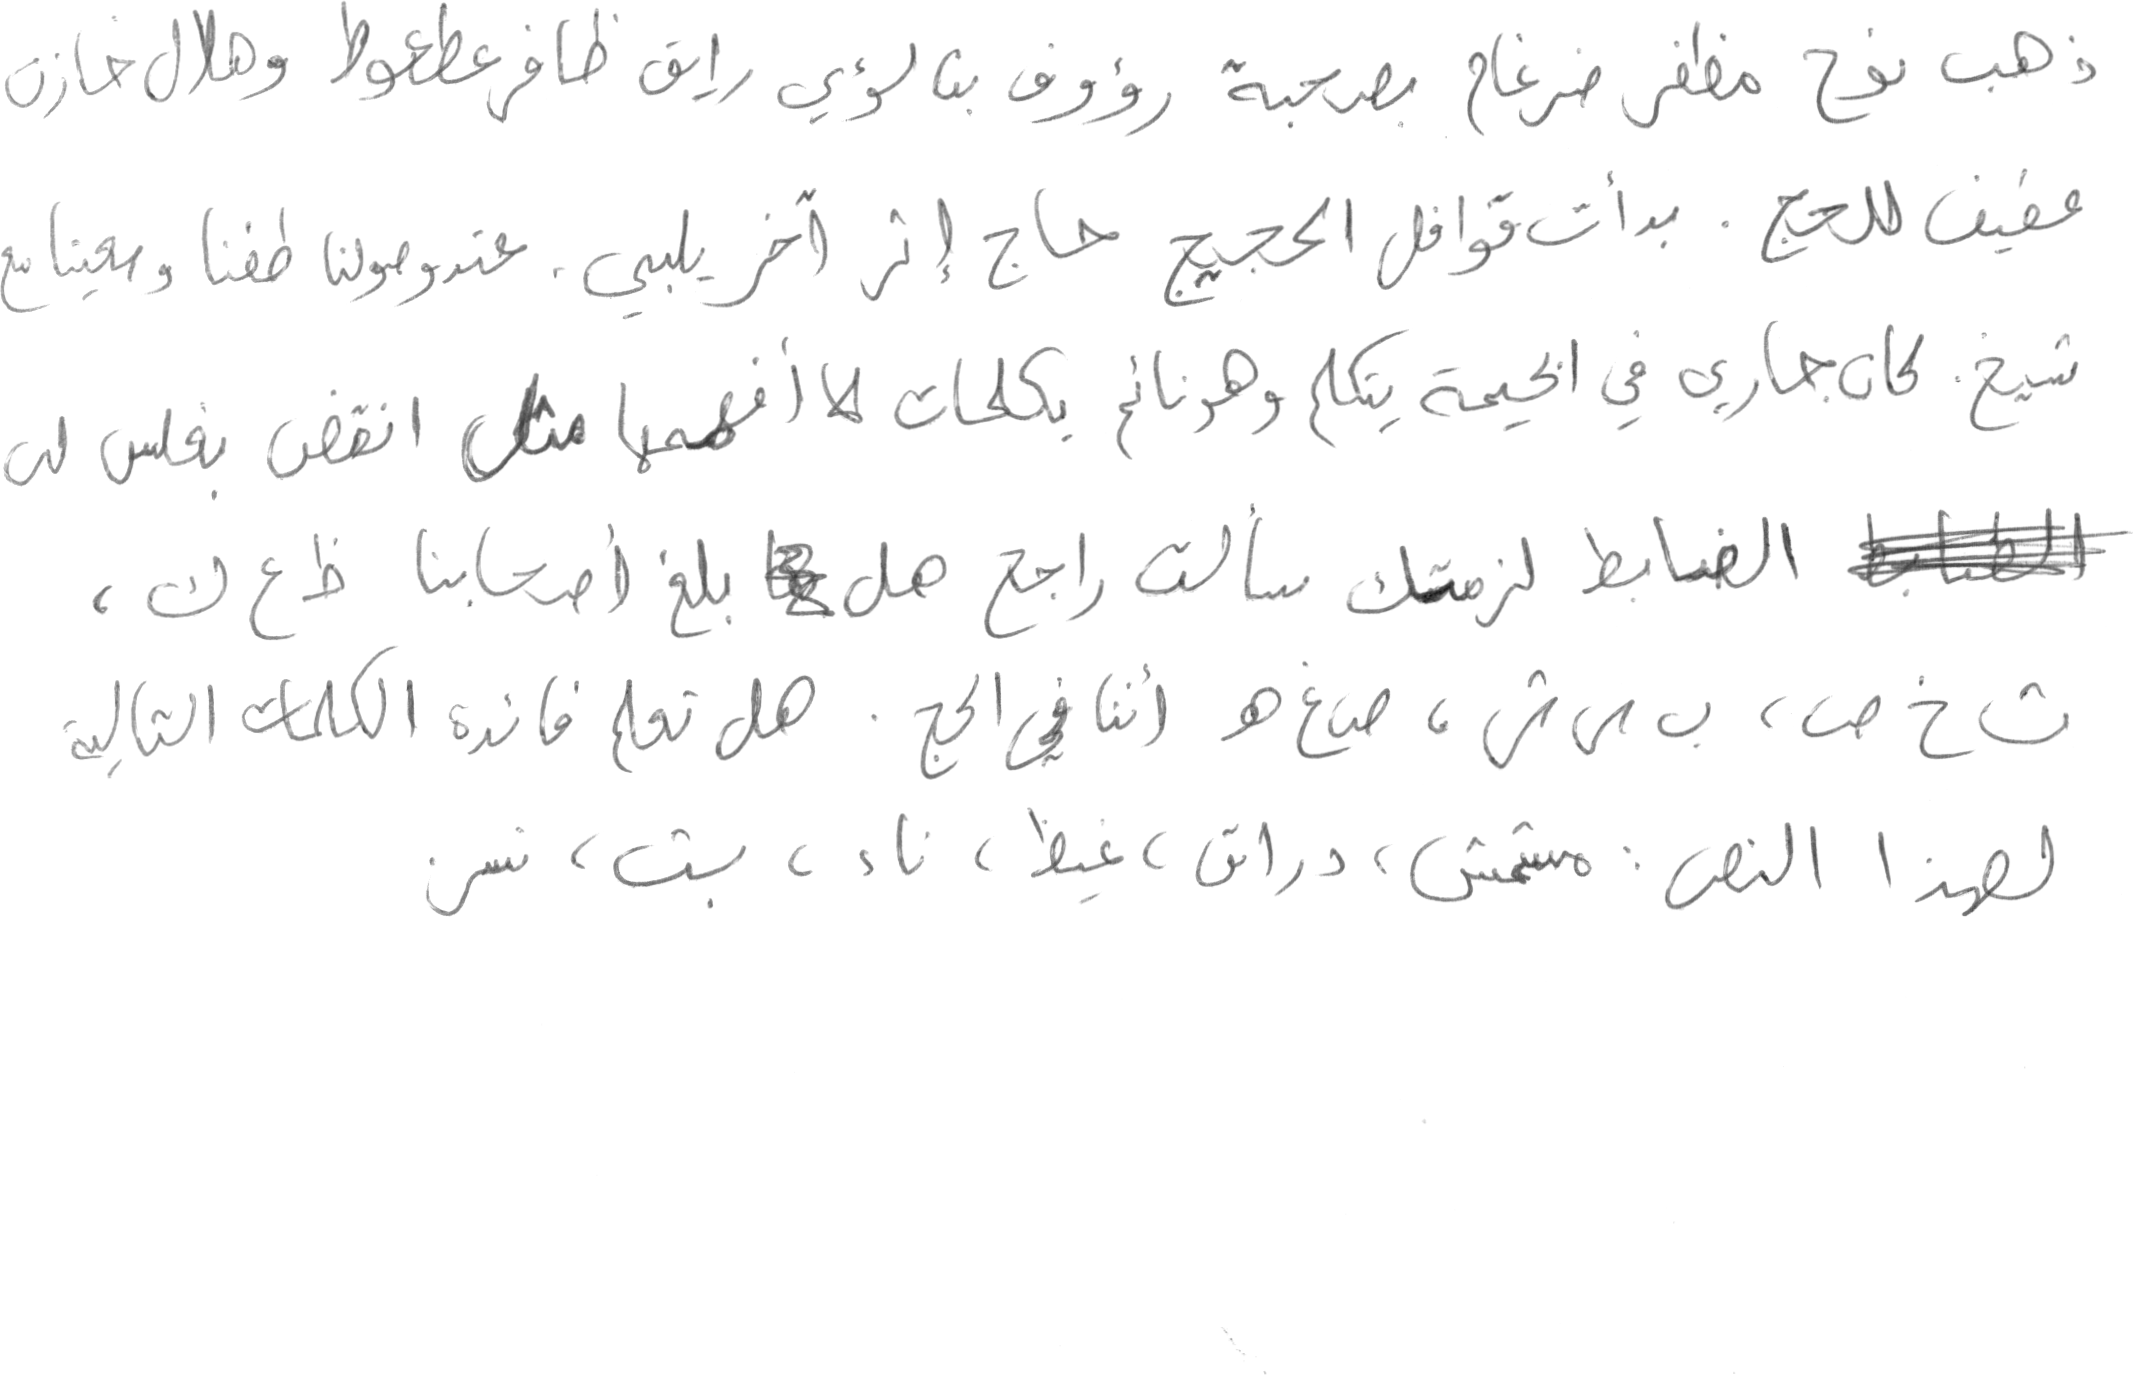 ذهب نوح مظفر ضرغام بصحبة رؤوف بنا لؤي رايق ظافر عطعوط وهلال خازن
عفيف للحج . بدأت قوافل الحجيج حاج إثر آخر يلبي . عند وصولنا طفنا وسعينا مع
شيخ . كان جاري في الخيمة يتكلم وهو نائم بكلمات لا أفهمها مثل انقض بفلس لن
الضابط لزمتك سألت راجح هل بلغ أصحابنا ظ ع ك ،
ث خ ص ، ب س ش ، ص غ هـ أننا في الحج . هل تعلم فائدة الكلمات التالية
لهذا النص : مشمش ، دراق ، غيظ ، ناء ، بيت ، نسر